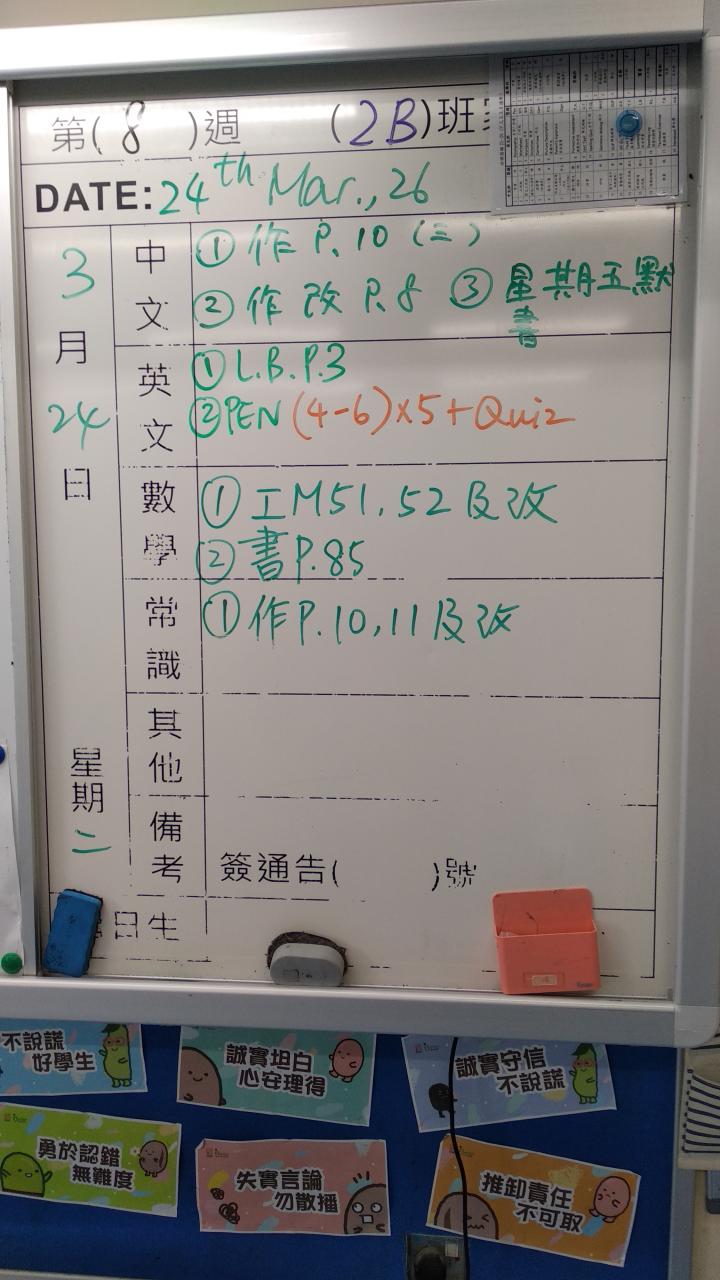 第( 8 )週 (2B)班
DATE: 24th Mar., 26
3月24日 星期二
中文
① 作 P. 10 (三)
② 作 改 P. 8 ③ 星期五默書
英文
① L.B. P.3
② PEN (4-6)x5+Quiz
數學
① 工M51, 52 及改
② 書P.85
常識
① 作P. 10, 11 及改
其他
備考
簽通告( )號
日生
不說謊
好學生
誠實坦白
心安理得
誠實守信
不說謊
勇於認錯
無難度
失實言論
勿散播
推卸責任
不可取